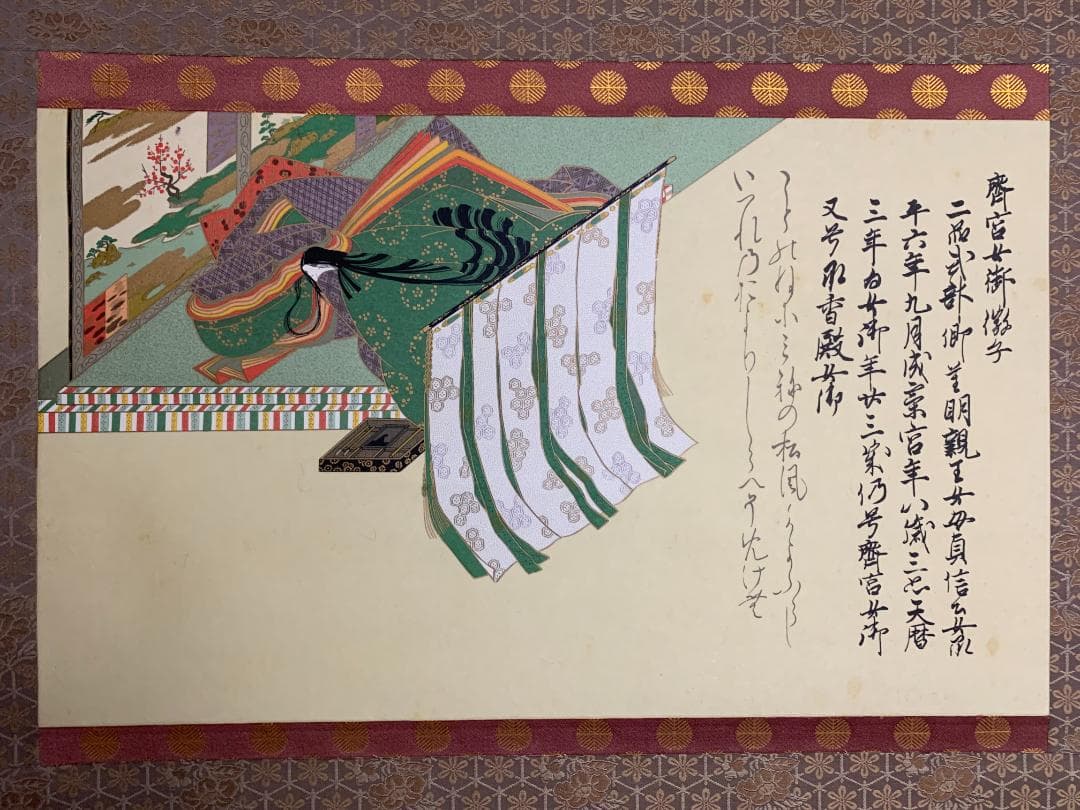 齊宮女御徽子
二品式部卿重明親王女母貞信公女承
平六年九月成齋宮年八歳三品天暦
三年為女御年廿三歳仍号齊宮女御
又号承香殿女御
ことのねにみねの松風かよふらし
いつれのをよりしらへそめけむ